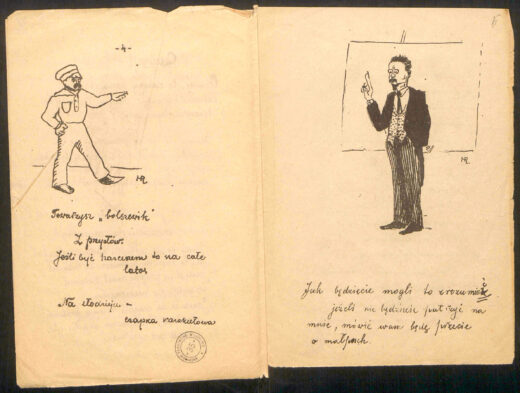 -4-
HR
Towarzysz „bolszewik"
Z przysłów:
Jeśli być harcerzem to na całe
Na złodzieju –
czapka karakułowa
HR
Jak będziecie mogli to zrozumieć
jeżeli nie będziecie patrzyć na
mnie, mówić wam będę przecie
o małpach.